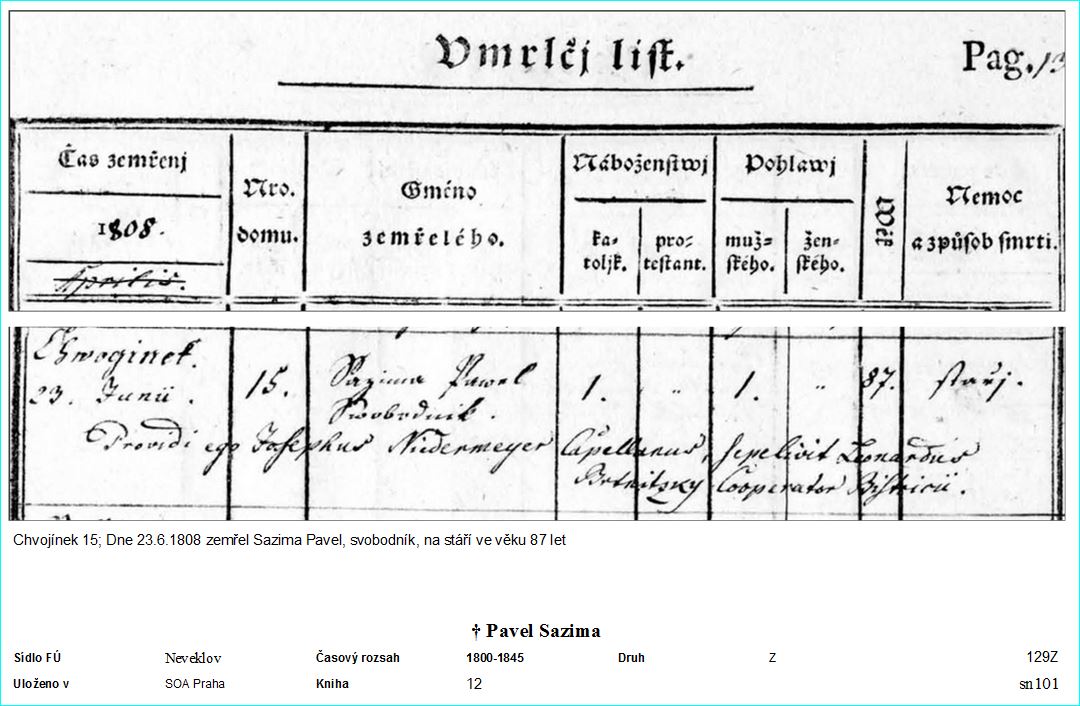 Vmrlčj list. Pag. 13
Čas zemřenj Nro. domu. Gméno zemřelého. Náboženstwj Pohlawj Wěk Nemoc a způsob smrti.
1808. ka- toljk. pro- testant. muž- ského. žen- ského.
Aprilis.
Chwoginek.
23. Junii. 15. Sazima Pawel 1. " 1. " 87. stářj.
Swobodnik
Providi ego Josephus Nidermeyer Capellanus, sepelivit Leonardus
Cooperator Bistricii.
Chvojínek 15; Dne 23.6.1808 zemřel Sazima Pavel, svobodník, na stáří ve věku 87 let
† Pavel Sazima
Sídlo FÚ Neveklov Časový rozsah 1800-1845 Druh Z 129Z
Uloženo v SOA Praha Kniha 12 sn101